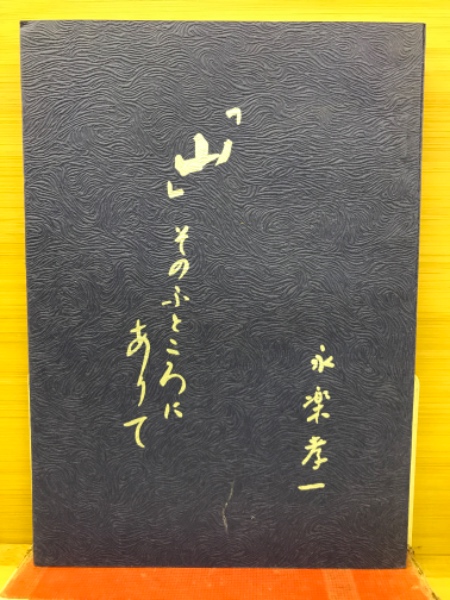 「山」そのふところに
ありて
永楽孝一